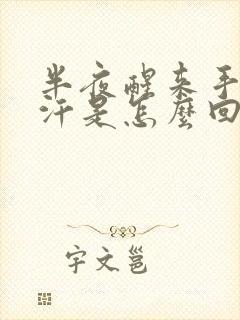 半夜醒来手
汗是怎麼回
宇文邕